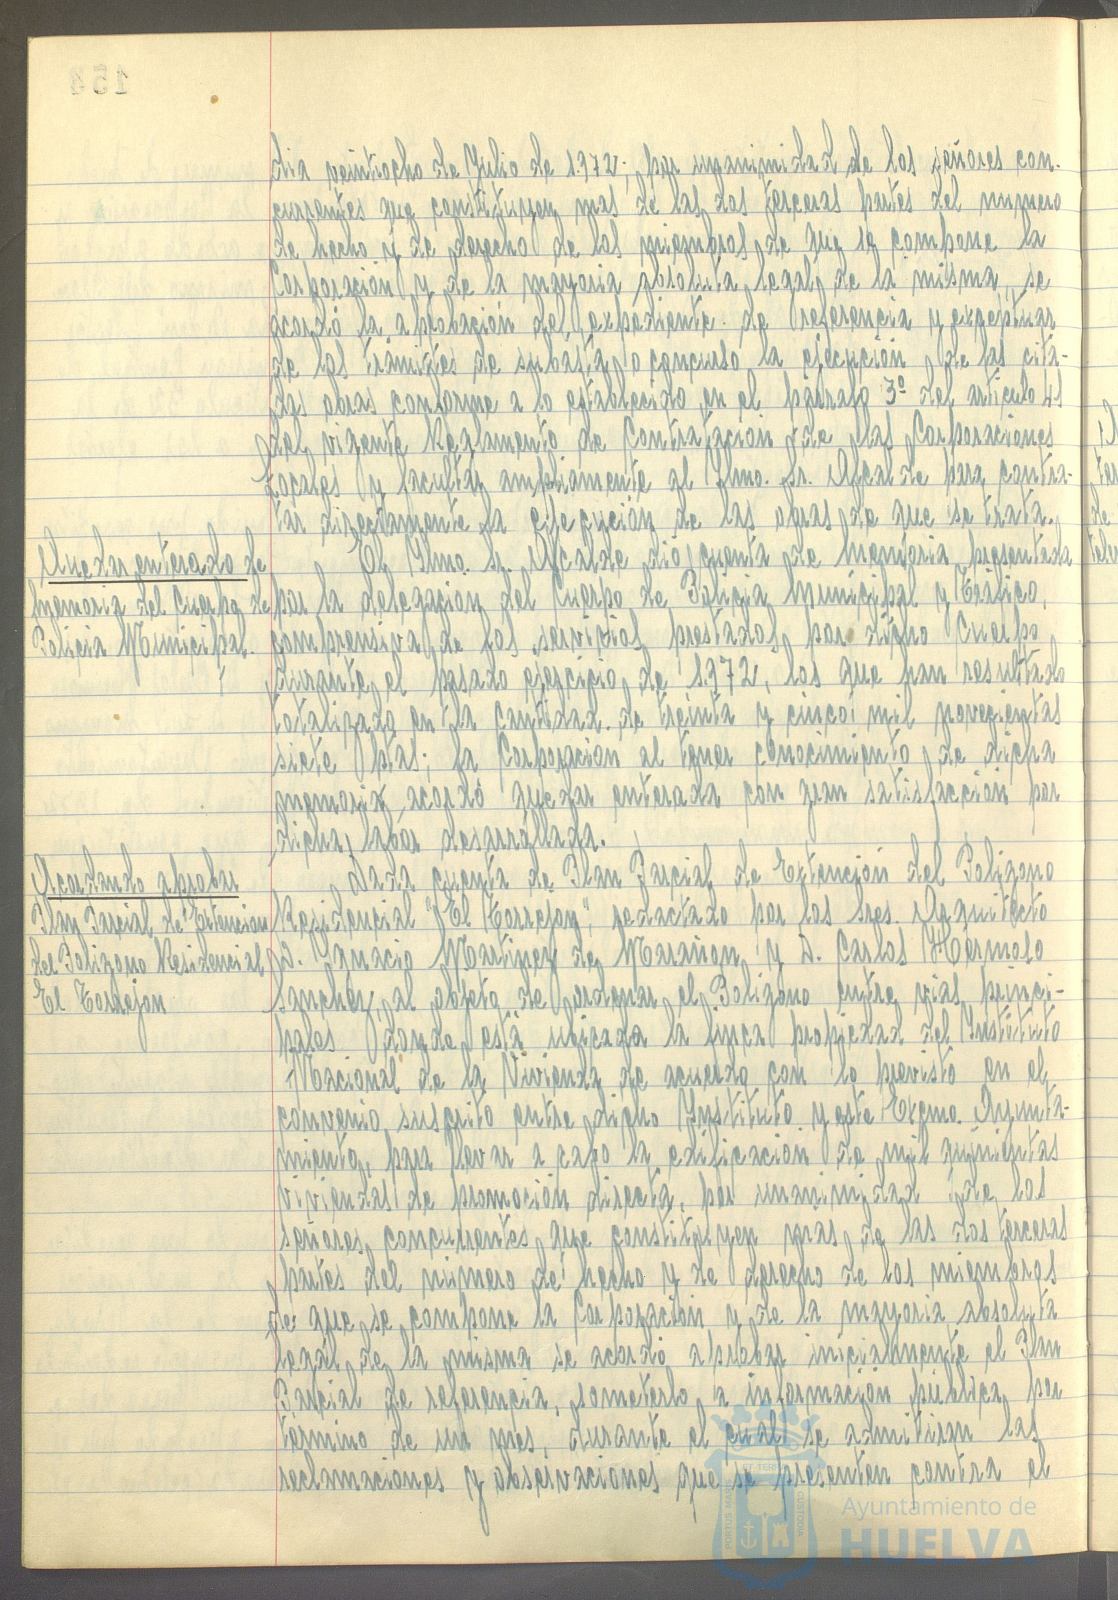 dia veintiocho de Julio de 1.972; por unanimidad de los señores con-
currentes que constituyen mas de las dos terceras partes del numero
de hecho y de derecho de los miembros de que se compone la
Corporación y de la mayoria absoluta legal de la misma, se
acordó la aprobación del expediente de referencia y exceptuar
de los trámites de subasta o concurso la ejecución de las cita-
das obras conforme a lo establecido en el párrafo 3º del articulo 41
del vigente Reglamento de Contratación de las Corporaciones
Locales y facultar ampliamente al Ilmo. Sr. Alcalde para contra-
tar directamente la ejecución de las obras de que se trata.
Quedar enterado de
Memoria del Cuerpo de
Policia Municipal.
El Ilmo. Sr. Alcalde dió cuenta de Memoria presentada
por la delegación del Cuerpo de Policia Municipal y Tráfico,
comprensiva de los servicios prestados por dicho Cuerpo
durante el pasado ejercicio de 1.972, los que han resultado
totalizado en la cantidad de treinta y cinco mil novecientas
siete ptas; la Corporación al tener conocimiento de dicha
memoria acordó quedar enterada con gran satisfacción por
dicha labor desarrollada.
Acordando aprobar
Plan Parcial de Extencion
del Poligono Residencial
El Torrejon
Dada cuenta de Plan Parcial de Extención del Poligono
Residencial "El Torrejon", redactado por los Sres. Arquitecto
D. Ignacio Martinez de Marañon y D. Carlos Hermoso
Sanchez, al objeto de ordenar el Poligono entre vias princi-
pales donde está ubicada la finca propiedad del Instituto
Nacional de la Vivienda de acuerdo con lo previsto en el
convenio suscrito entre dicho Instituto y este Excmo. Ayunta-
miento, para llevar a cabo la edificación de mil quinientas
viviendas de promoción directa, por unanimidad de los
señores concurrentes que constituyen mas de las dos terceras
partes del número de hecho y de derecho de los miembros
de que se compone la Corporación y de la mayoria absoluta
legal de la misma se acordó aprobar inicialmente el Plan
Parcial de referencia, someterlo a información pública por
termino de un mes, durante el cual se admitiran las
reclamaciones y observaciones que se presenten contra el
PORTUS MARIS
ET TERRAE
CUSTODIA
Ayuntamiento de
HUELVA